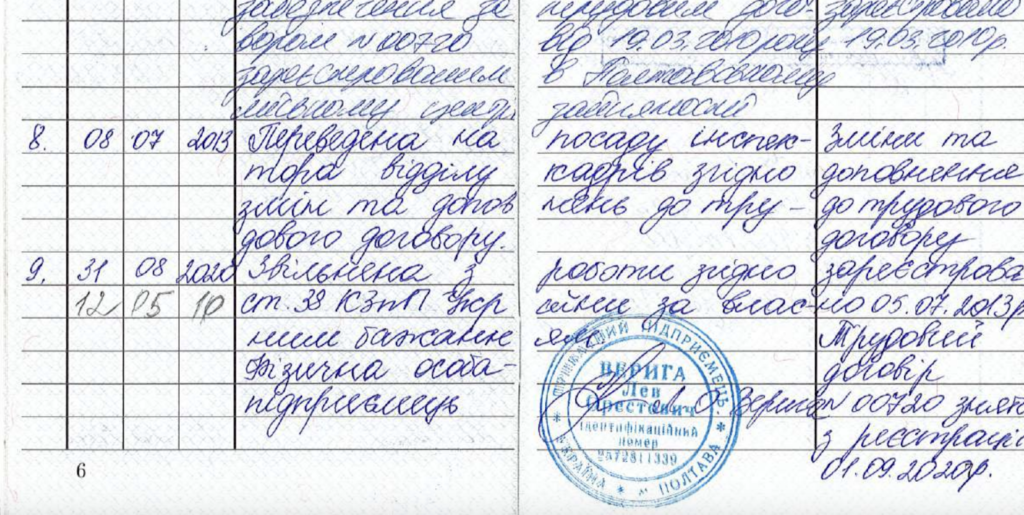 забезпечення за дого-
вором N 00720
зареєстрованим
міському центрі
8. 08 07 2013 Переведена на
тора відділу
змін та допов
дового договору.
9. 31 08 2020 Звільнена з
12 05 10 ст. 38 КЗпП Укр
ним бажанн
Фізична особа-
підприємець
6
трудовим дого-
від 19.03.2010 року
в Полтавському
зайнятості
посаду інспек-
кадрів згідно
нень до тру-
роботи згідно
аїни за влас-
ям
ПІДПРИЄМЕЦЬ
ВЕРИГА
Лев
Орестович
ідентифікаційний
номер
2672811339
* УКРАЇНА * м ПОЛТАВА *
Л.О. Верига
зареєстровано
19.03.2010р.
Зміни та
доповнення
до трудового
договору
зареєстрова
но 05.07.2013р
Трудовий
договір
N 00720 знято
з реєстрації
01.09.2020р.